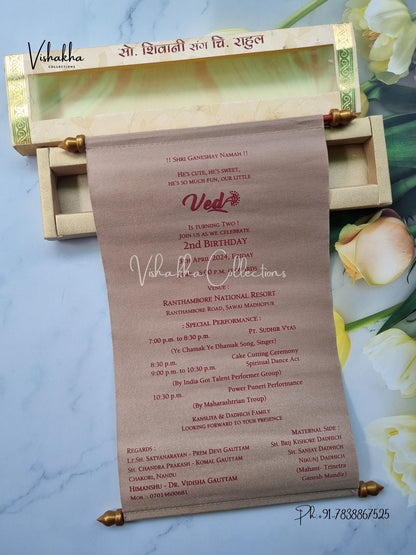 Vishakha
COLLECTIONS
सौ. शिवानी संग चि. राहुल
!! Shri Ganeshay Namah !!
He's cute, he's sweet,
he's so much fun, our little
Ved
Is turning Two !
Join us as we celebrate
2nd Birthday
April 2024, Friday
p.m. onwards
Vishakha Collections
Venue :
Ranthambore National Resort
Ranthambore Road, Sawai Madhopur
: Special Performance :
7:00 p.m. to 8:30 p.m. Pt. Sudhir Vyas
(Ye Chamak Ye Dhamak Song, Singer)
8:30 p.m. Cake Cutting Ceremony
9:00 p.m. to 10:30 p.m. Spiritual Dance Act
(By India Got Talent Performer Group)
10:30 p.m. Power Puneri Performance
(By Maharashtrian Troup)
Kansuya & Dadhich Family
Looking forward to your presence
Regards :
Lt.Sh. Satyanarayan - Prem Devi Gauttam
Sh. Chandra Prakash - Komal Gauttam
Chakori, Nandu
Himanshu - Dr. Vidisha Gauttam
Mob. : 07014600681
Maternal Side :
Sh. Brij Kishore Dadhich
Sh. Sanjay Dadhich
Nikunj Dadhich
(Mahant- Trinetra
Ganesh Mandir)
Ph.+91-7838867525